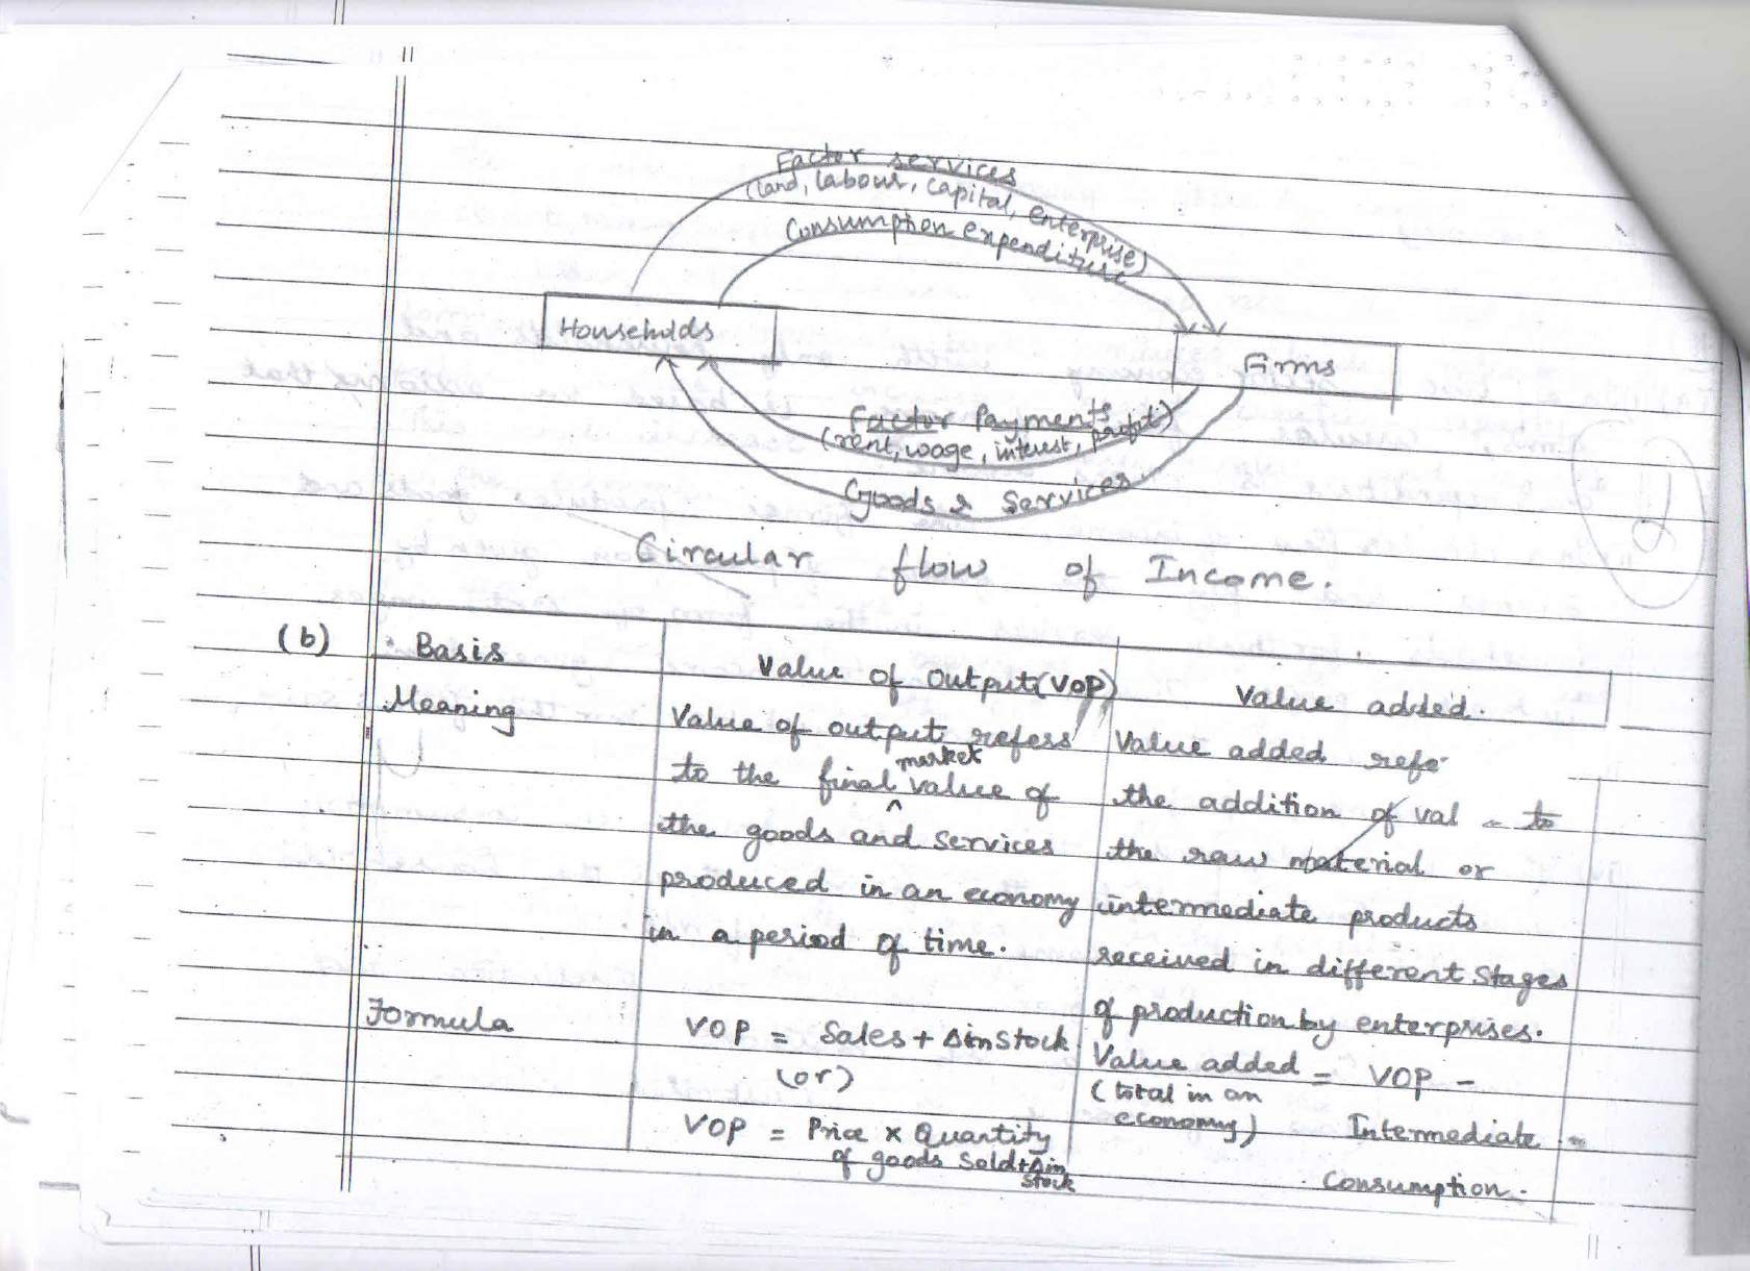 Factor services
(land, labour, capital, enterprise)
Consumption expenditure
Households
Firms
Factor Payments
(rent, wage, interest, profit)
Goods & Services
Circular flow of Income.
(b)
Basis
Value of Output (VOP)
Value added.
Meaning
Value of output refers
to the final market value of
the goods and services
produced in an economy
in a period of time.
Value added
the addition of val to
the raw material or
intermediate products
received in different stages
of production by enterprises.
Formula
VOP = Sales + Δ in Stock
(or)
VOP = Price x Quantity
of goods Sold + Δ in
stock
Value added = VOP -
(total in an
economy) Intermediate
Consumption.